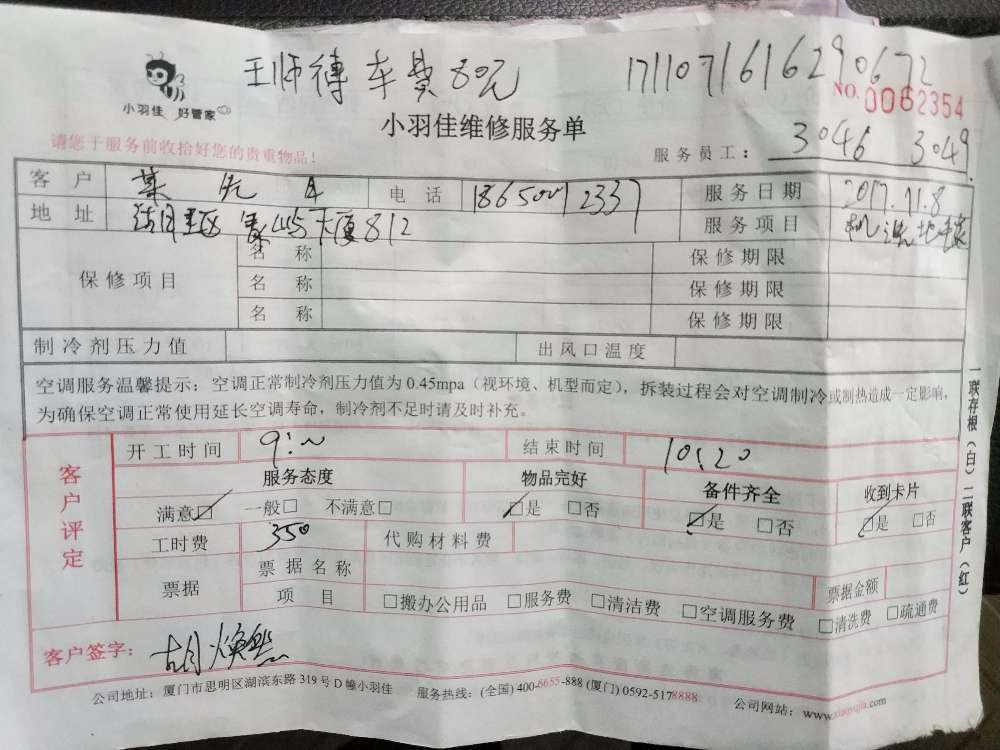 王师傅 车费80元 1711071616290672
小羽佳 好管家
NO. 0062354
小羽佳维修服务单
请您于服务前收拾好您的贵重物品!
服务员工: 3046 3049
客户 电话 服务日期 2017.11.8
地址 812 服务项目 机洗地毯
保修项目 名称 保修期限
名称 保修期限
名称 保修期限
制冷剂压力值 出风口温度
空调服务温馨提示:空调正常制冷剂压力值为0.45mpa(视环境、机型而定),拆装过程会对空调制冷或制热造成一定影响,
为确保空调正常使用延长空调寿命,制冷剂不足时请及时补充。
一联存根(白)二联客户(红)
客户评定
开工时间 9: 结束时间 10:20
服务态度 物品完好 备件齐全 收到卡片
满意☑ 一般□ 不满意□ ☑是 □否 ☑是 □否 ☑是 □否
工时费 350 代购材料费
票据 票据名称 票据金额
项目 □搬办公用品 □服务费 □清洁费 □空调服务费 □清洗费 □疏通费
客户签字: 胡焕然
公司地址:厦门市思明区湖滨东路319号D幢小羽佳 服务热线:(全国)400-6655-888 (厦门)0592-5178888 公司网站:www.xiaoyujia.com